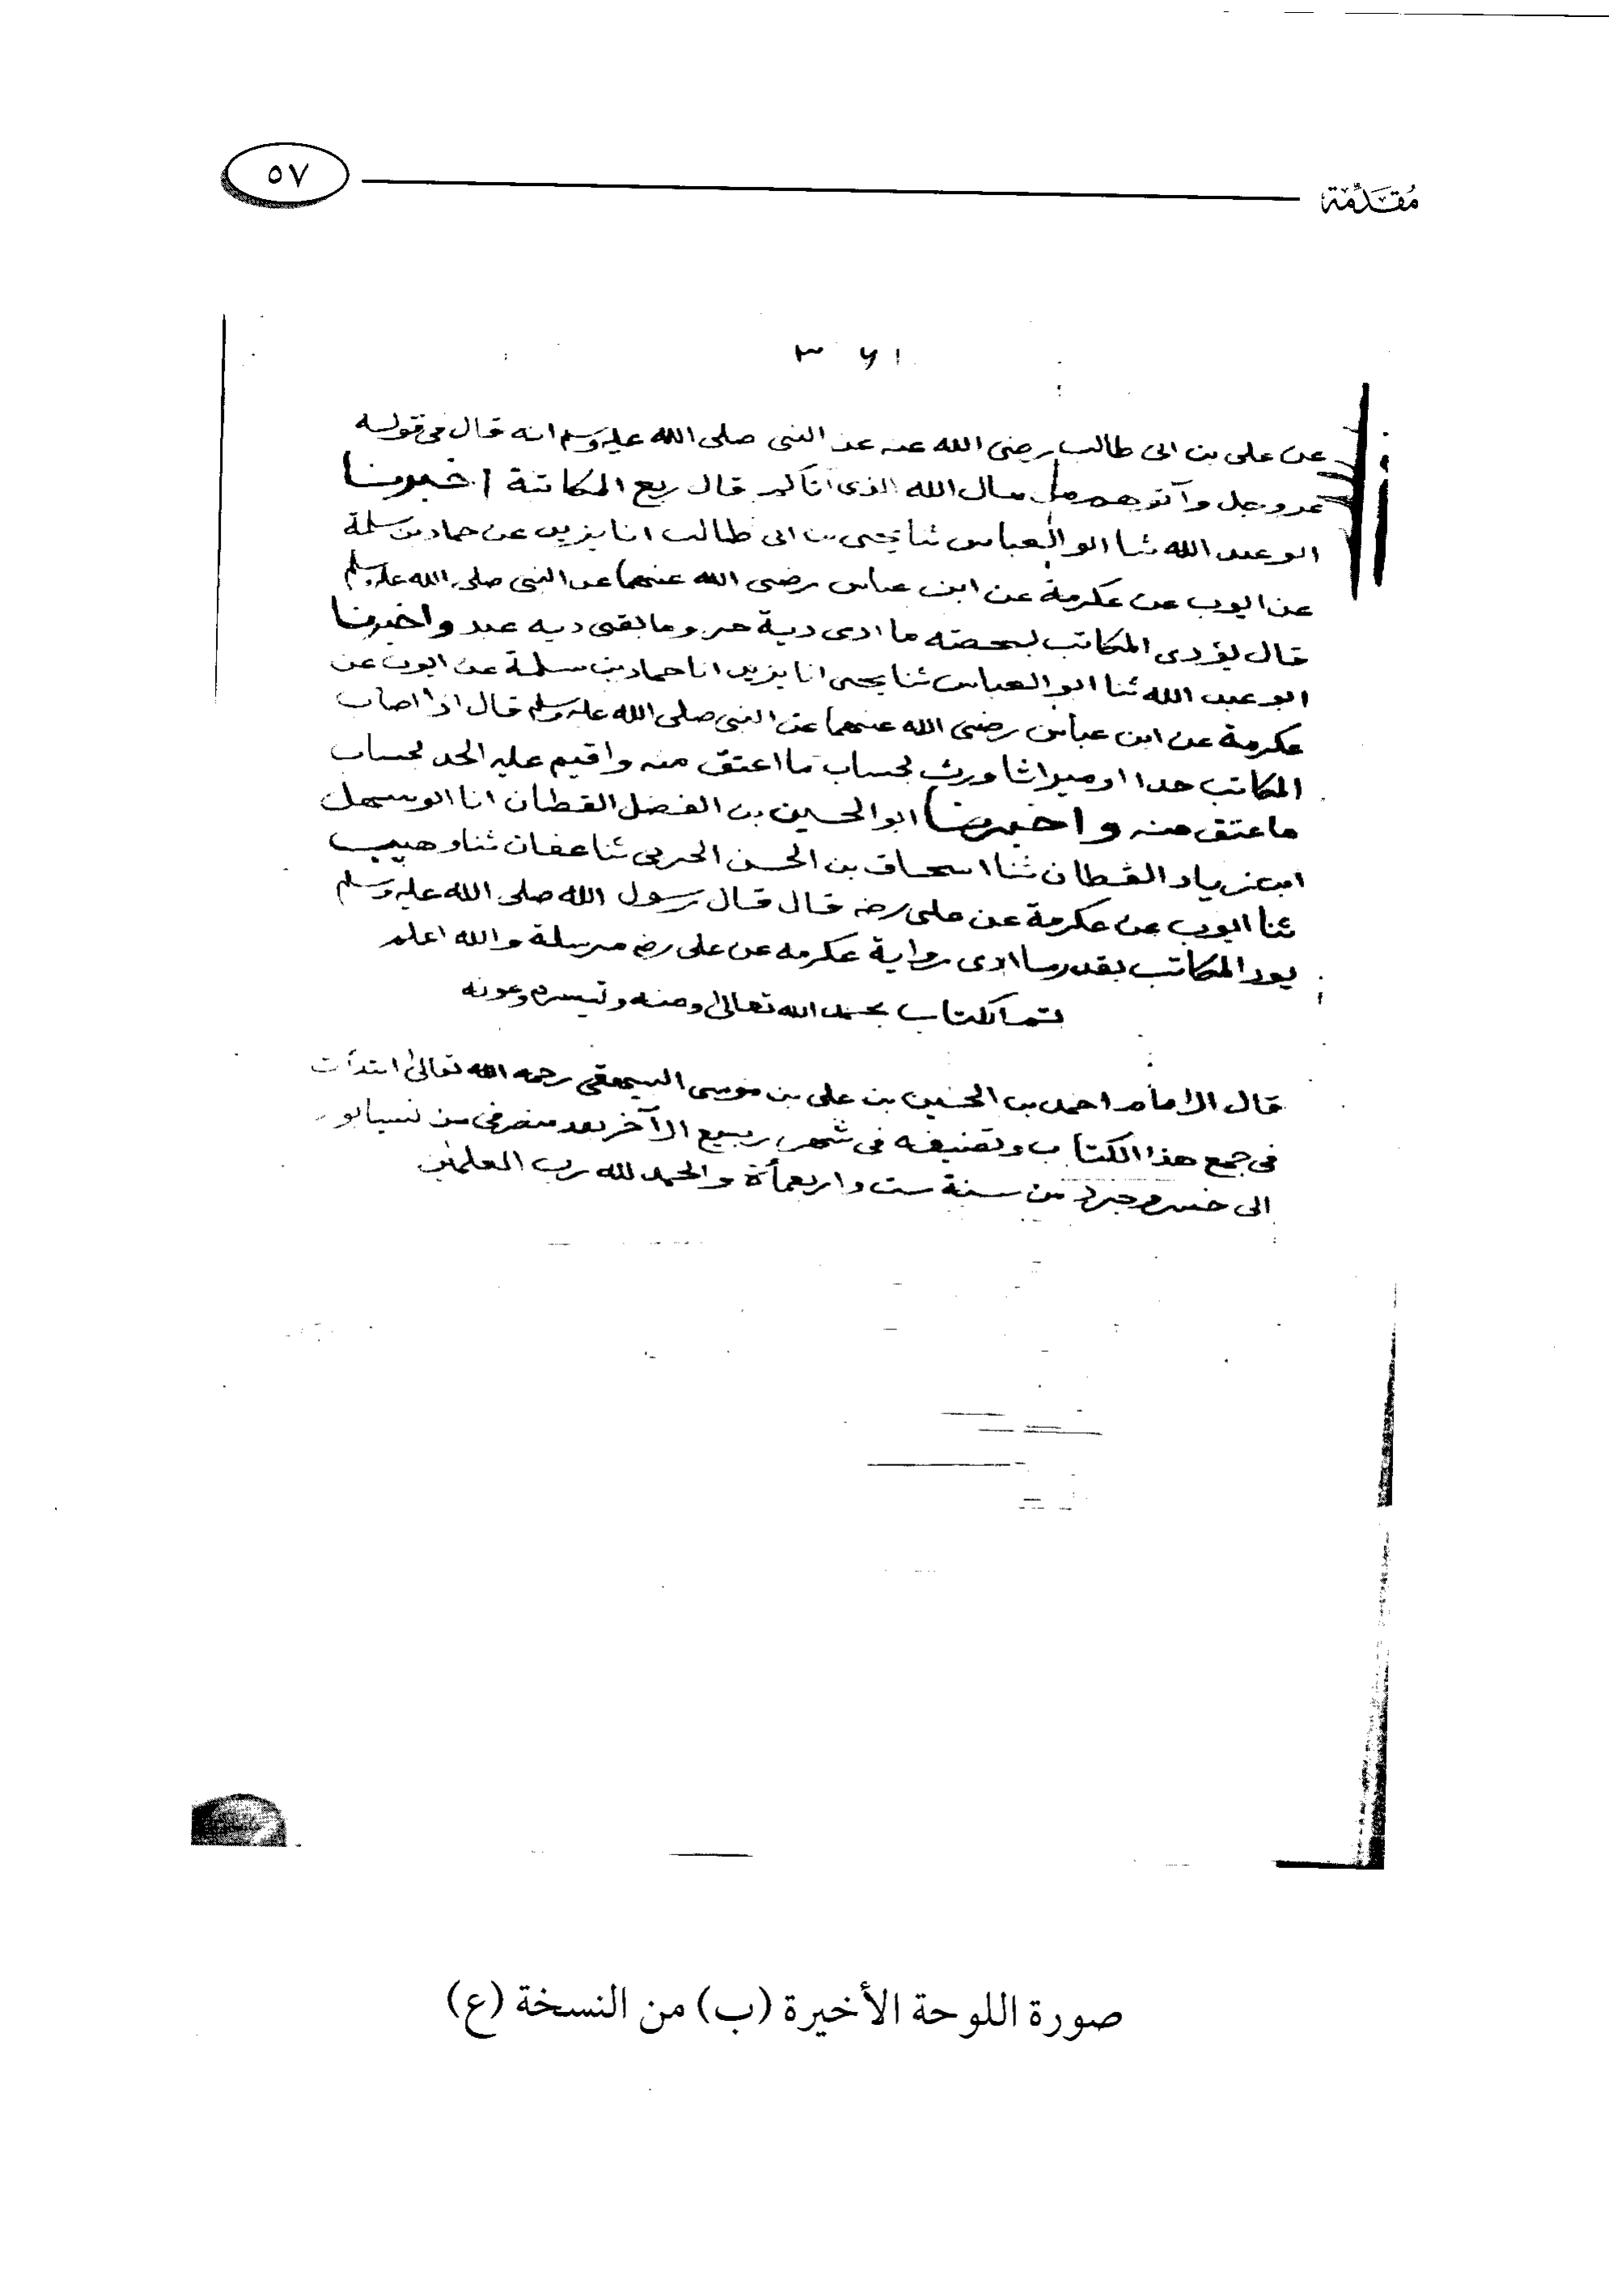 مُقَدِّمَة
٥٧
عن على بن ابى طالب رضى الله عنه عن النبى صلى الله عليه وسلم انه قال فى قوله
عز وجل وآتوهم من مال الله الذى آتاكم قال ربع المكاتبة اخبرنا
ابو عبد الله ثنا ابو العباس ثنا يحيى بن ابى طالب انا يزيد عن حماد بن سلمة
عن ايوب عن عكرمة عن ابن عباس رضى الله عنهما عن النبى صلى الله عليه وسلم
قال يؤدى المكاتب بحصته ما ادى دية حر وما بقى ديه عبد واخبرنا
ابو عبد الله ثنا ابو العباس ثنا يحيى انا يزيد انا حماد بن سلمة عن ايوب عن
عكرمة عن ابن عباس رضى الله عنهما عن النبى صلى الله عليه وسلم قال اذا اصاب
المكاتب حدا او ميراثا ورث بحساب ما اعتق منه واقيم عليه الحد بحساب
ما عتق منه واخبرنا ابو الحسين بن الفضل القطان انا ابو سهل
ابن زياد القطان ثنا اسحاق بن الحسن الحربى ثنا عفان ثنا وهيب
ثنا ايوب عن عكرمة عن على رضه قال قال رسول الله صلى الله عليه وسلم
يود المكاتب بقدر ما ادى رواية عكرمه عن على رضه مرسلة والله اعلم
تم الكتاب بحمد الله تعالى ومنه وتيسيره وعونه
قال الامام احمد بن الحسين بن على بن موسى البيهقى رحمه الله تعالى ابتدأت
فى جمع هذا الكتاب وتصنيفه فى شهر ربيع الآخر بعد منصرفى من نسيابور
الى خسروجرد من سنة ست واربعمأة والحمد لله رب العلمين
صورة اللوحة الأخيرة (ب) من النسخة (ع)